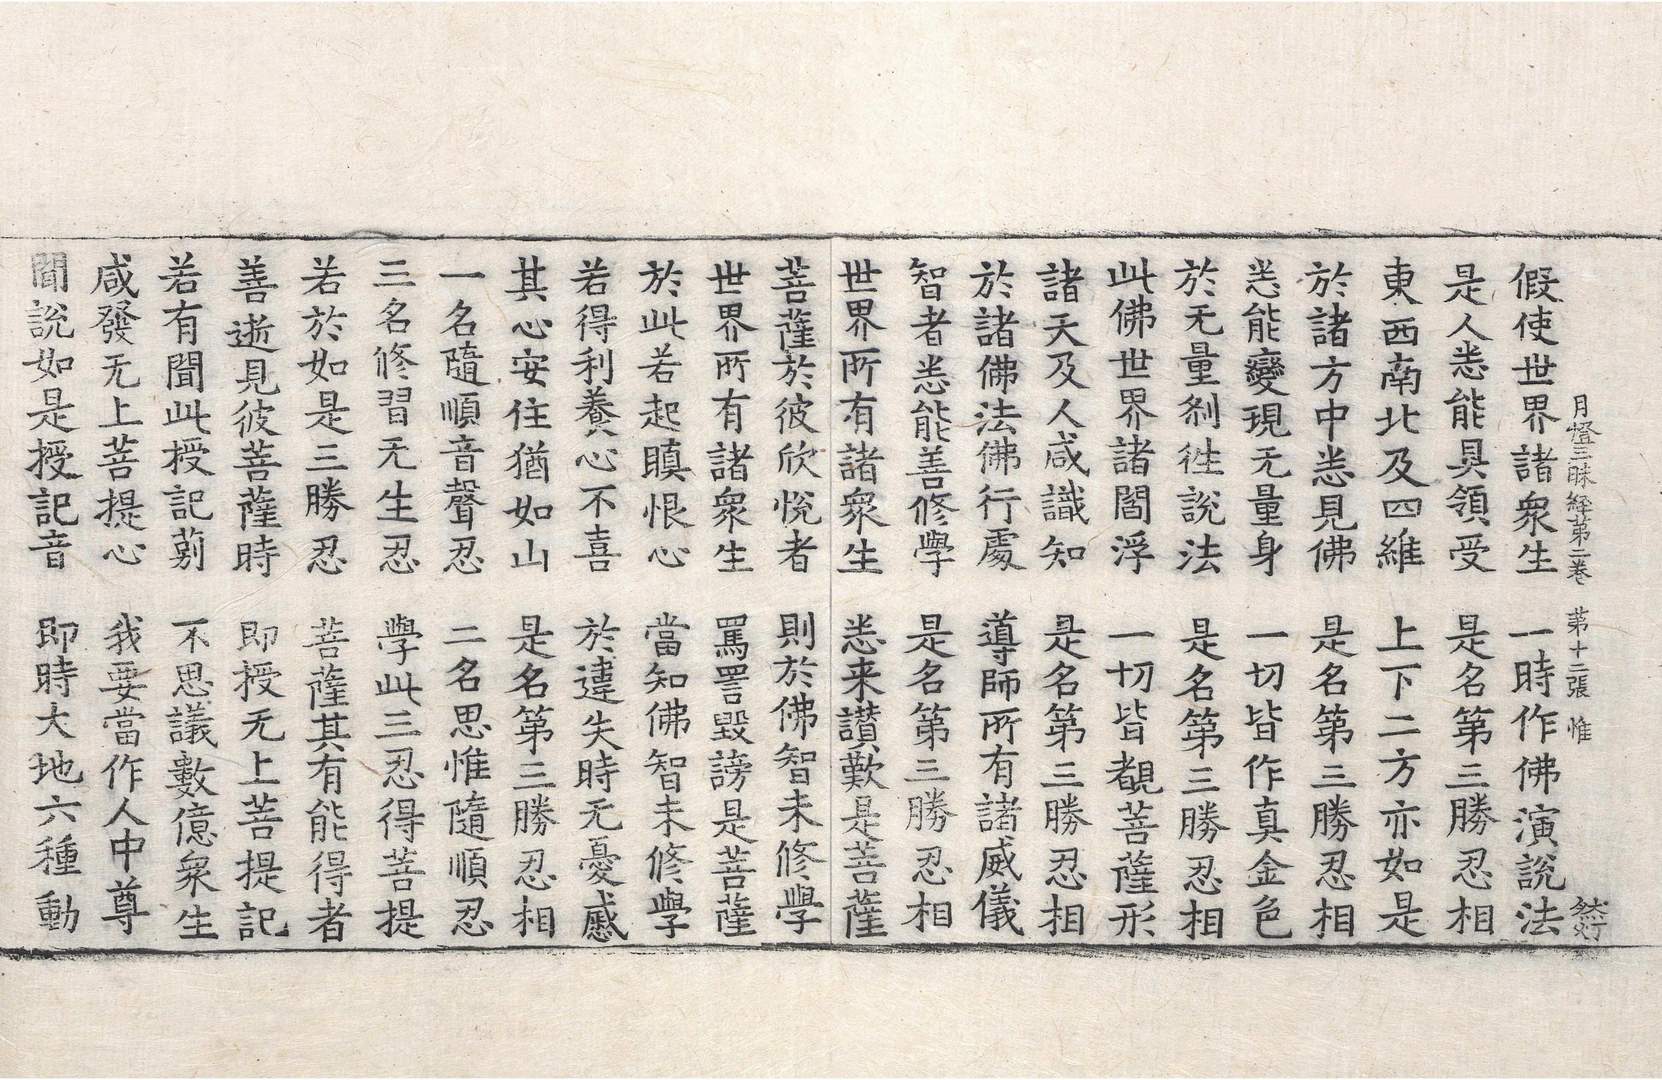 月燈三昧經第二卷 第十二張 惟
假使世界諸衆生 一時作佛演說法
是人悉能具領受 是名第三勝忍相
東西南北及四維 上下二方亦如是
於諸方中悉見佛 是名第三勝忍相
悉能變現无量身 一切皆作真金色
於无量剎往說法 是名第三勝忍相
此佛世界諸閻浮 一切皆覩菩薩形
諸天及人咸識知 是名第三勝忍相
於諸佛法佛行處 導師所有諸威儀
智者悉能善修學 是名第三勝忍相
世界所有諸衆生 悉来讃歎是菩薩
菩薩於彼欣悅者 則於佛智未修學
世界所有諸衆生 罵詈毀謗是菩薩
於此若起瞋恨心 當知佛智未修學
若得利養心不喜 於違失時无憂慼
其心安住猶如山 是名第三勝忍相
一名隨順音聲忍 二名思惟隨順忍
三名修習无生忍 學此三忍得菩提
若於如是三勝忍 菩薩其有能得者
善逝見彼菩薩時 即授无上菩提記
若有聞此授記莂 不思議數億衆生
咸發无上菩提心 我要當作人中尊
聞說如是授記音 即時大地六種動